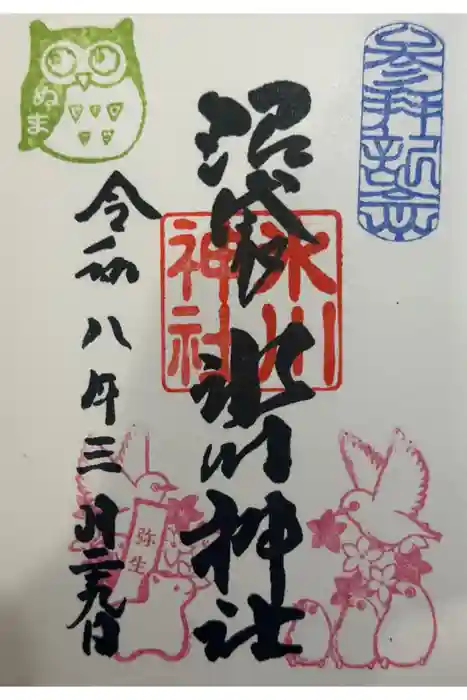 参拝記念
沼袋氷川神社
氷川
神社
令和八年三月二九日
ぬま
弥生